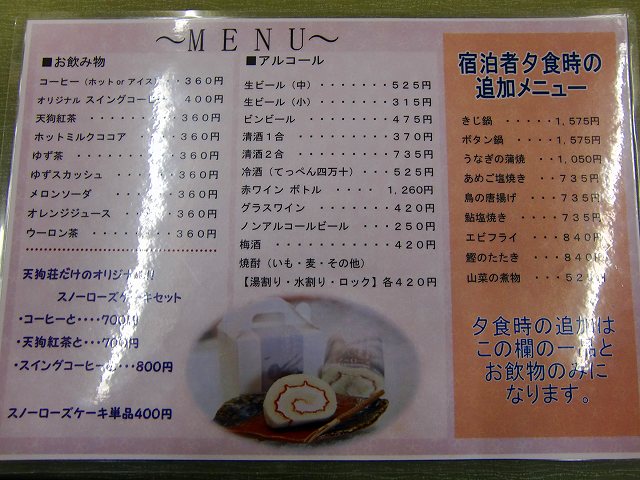 ～MENU～
■お飲み物
コーヒー（ホット or アイス）・・・３６０円
オリジナル スイングコーヒー ４００円
天狗紅茶 ・・・・・・・・３６０円
ホットミルクココア ・・・・３６０円
ゆず茶 ・・・・・・・・・３６０円
ゆずスカッシュ ・・・・・３６０円
メロンソーダ ・・・・・・３６０円
オレンジジュース ・・・・３６０円
ウーロン茶 ・・・・・・・３６０円
天狗荘だけのオリジナル
スノーローズケーキセット
・コーヒーと・・・・700円
・天狗紅茶と・・・700円
・スイングコーヒーと・・・800円
スノーローズケーキ単品400円
■アルコール
生ビール（中）・・・・・・・５２５円
生ビール（小）・・・・・・・３１５円
ビンビール ・・・・・・・４７５円
清酒１合 ・・・・・・・・３７０円
清酒２合 ・・・・・・・・７３５円
冷酒（てっぺん四万十）・・・５２５円
赤ワイン ボトル ・・・・ １，２６０円
グラスワイン ・・・・・・・４２０円
ノンアルコールビール ・・・２５０円
梅酒 ・・・・・・・・・・４２０円
焼酎（いも・麦・その他）
【湯割り・水割り・ロック】各４２０円
宿泊者夕食時の
追加メニュー
きじ鍋 ・・・・・１，５７５円
ボタン鍋 ・・・・１，５７５円
うなぎの蒲焼 ・・１，０５０円
あめご塩焼き ・・・７３５円
鳥の唐揚げ ・・・・７３５円
鮎塩焼き ・・・・・７３５円
エビフライ ・・・・８４０円
鰹のたたき ・・・・８４０円
山菜の煮物 ・・・５２５円
夕食時の追加は
この欄の一品と
お飲物のみに
なります。